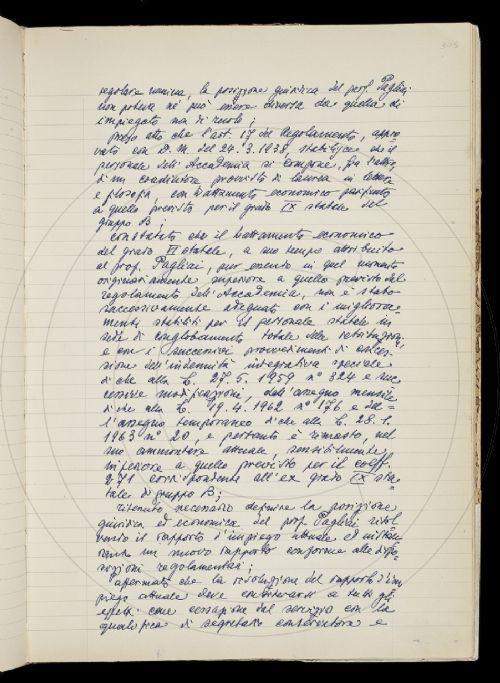 305
regolare nomina, la posizione giuridica del prof. Pagliai
non poteva né può essere diversa da quella di
impiegato non di ruolo;
preso atto che l'art. 17 del Regolamento, appro
vato con D.M. del 24.3.1938, stabilisce che il
personale dell'Accademia si compone, fra l'altro,
di un coadiutore provvisto di laurea in lettere
e filosofia, con trattamento economico parificato
a quello previsto per il grado IX statale del
gruppo B;
constatato che il trattamento economico
del grado VI statale, a suo tempo attribuito
al prof. Pagliai, pur essendo in quel momento
originariamente superiore a quello previsto dal
regolamento dell'Accademia, non è stato
successivamente adeguato con i migliora=
menti stabiliti per il personale statale in
sede di conglobamento totale delle retribuzioni
e con i successivi provvedimenti di
sione dell'indennità integrativa speciale
di che alla L. 27.5.1959 n° 324 e suc
cessive modificazioni, dell'assegno mensile
di che alla L. 19.4.1962 n° 176 e del=
l'assegno temporaneo di che alla L. 28.1.
1963 n° 20, e pertanto è rimasto, nel
suo ammontare attuale, sensibilmente
inferiore a quello previsto per il coeff.
271 corrispondente all'ex grado IX sta=
tale di gruppo B;
ritenuto necessario definire la posizione
giuridica ed economica del prof. Pagliai risol
vendo il rapporto d'impiego attuale ed instau
rando un nuovo rapporto conforme alle dispo
sizioni regolamentari;
affermato che la risoluzione del rapporto d'im
piego attuale deve considerarsi a tutti gli
effetti come cessazione dal servizio con la
qualifica di segretario conservatore e